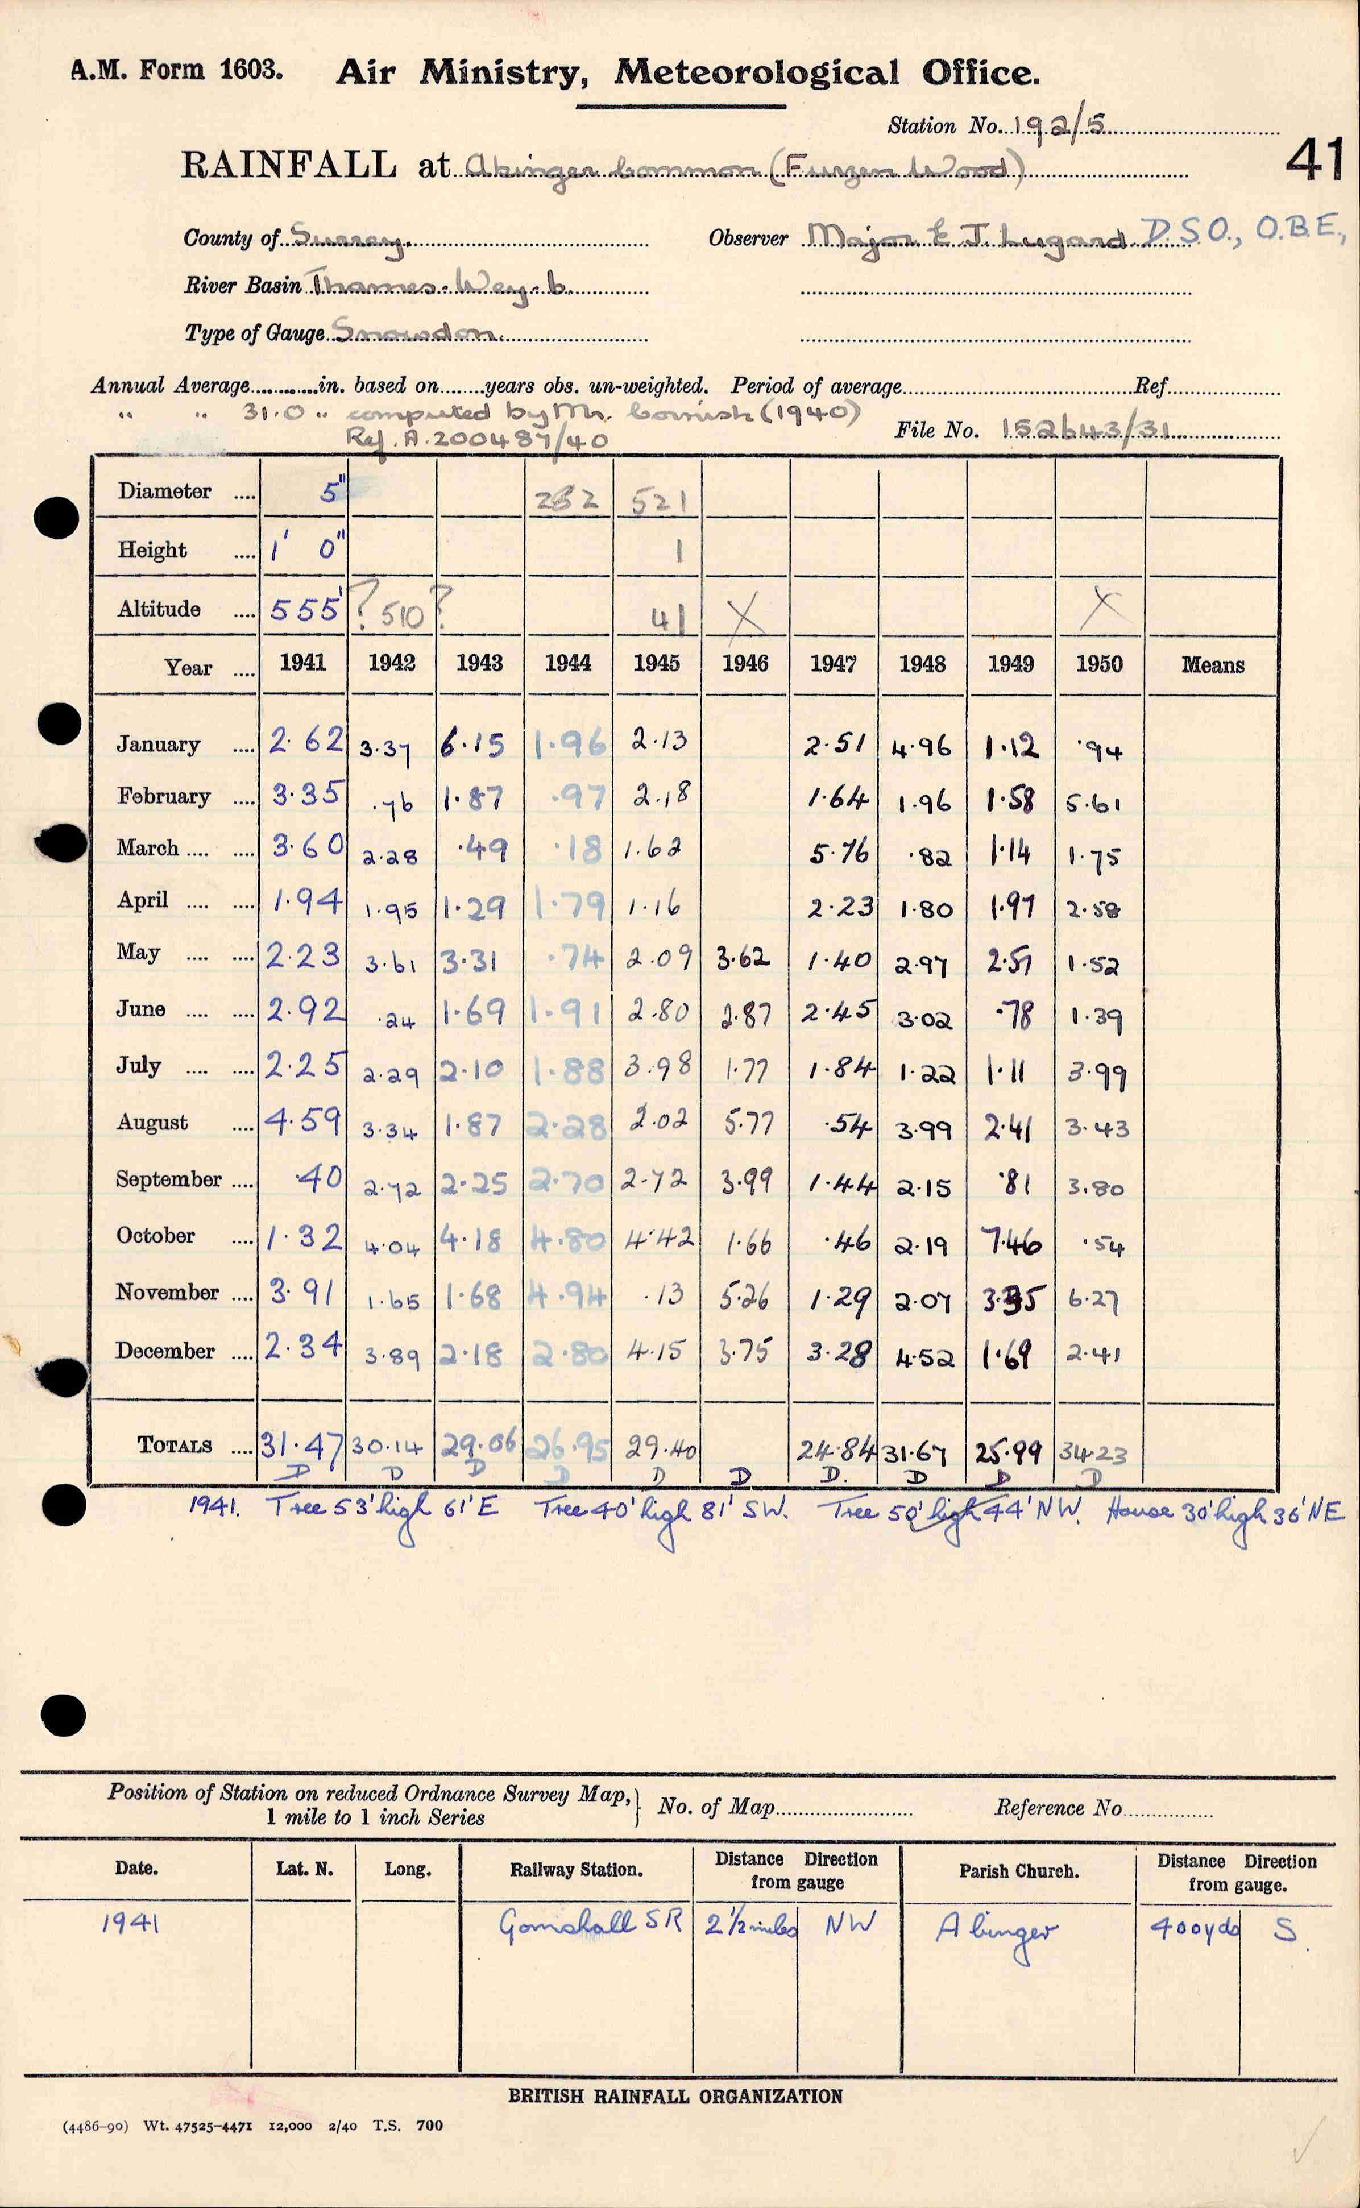 A.M. Form 1603. Air Ministry, Meteorological Office.
Station No. 192/5
41
RAINFALL at Abinger Common (Furzen Wood)
County of Surrey. Observer Major E J. Lugard D.S.O., O.B.E.,
River Basin Thames-Wey-b.
Type of Gauge Snowdon.
Annual Average............in. based on.......years obs. un-weighted. Period of average.......... Ref..........
" " 31.0 " computed by Mr. Cornish (1940)
File No. 152643/31
Ref. A.200487/40
Diameter .... 5" 232 521
Height .... 1' 0" 1
Altitude .... 555' ?510? 41 X X
Year .... 1941 1942 1943 1944 1945 1946 1947 1948 1949 1950 Means
January .... 2.62 3.37 6.15 1.96 2.13 2.51 4.96 1.12 .94
February .... 3.35 .76 1.87 .97 2.18 1.64 1.96 1.58 5.61
March .... .... 3.60 2.28 .49 .18 1.62 5.76 .82 1.14 1.75
April .... .... 1.94 1.95 1.29 1.79 1.16 2.23 1.80 1.97 2.58
May .... .... 2.23 3.61 3.31 .74 2.09 3.62 1.40 2.97 2.57 1.52
June .... .... 2.92 .24 1.69 1.91 2.80 2.87 2.45 3.02 .78 1.39
July .... .... 2.25 2.29 2.10 1.88 3.98 1.77 1.84 1.22 1.11 3.99
August .... 4.59 3.34 1.87 2.28 2.02 5.77 .54 3.99 2.41 3.43
September .... .40 2.72 2.25 2.70 2.72 3.99 1.44 2.15 .81 3.80
October .... 1.32 4.04 4.18 4.80 4.42 1.66 .46 2.19 7.46 .54
November .... 3.91 1.65 1.68 4.94 .13 5.26 1.29 2.07 3.35 6.27
December .... 2.34 3.89 2.18 2.80 4.15 3.75 3.28 4.52 1.69 2.41
TOTALS .... 31.47 30.14 29.06 26.95 29.40 24.84 31.67 25.99 34.23
D D D D D D D. D D D
1941. Tree 53' high 61' E Tree 40' high 81' SW. Tree 50' high 44' NW. House 30' high 36' NE
Position of Station on reduced Ordnance Survey Map, No. of Map.......... Reference No..........
1 mile to 1 inch Series
Date. Lat. N. Long. Railway Station. Distance Direction from gauge Parish Church. Distance Direction from gauge.
1941 Gomshall SR 2 1/2 miles NW Abinger 400yds S.
BRITISH RAINFALL ORGANIZATION
(4486-90) Wt. 47525-4471 12,000 2/40 T.S. 700